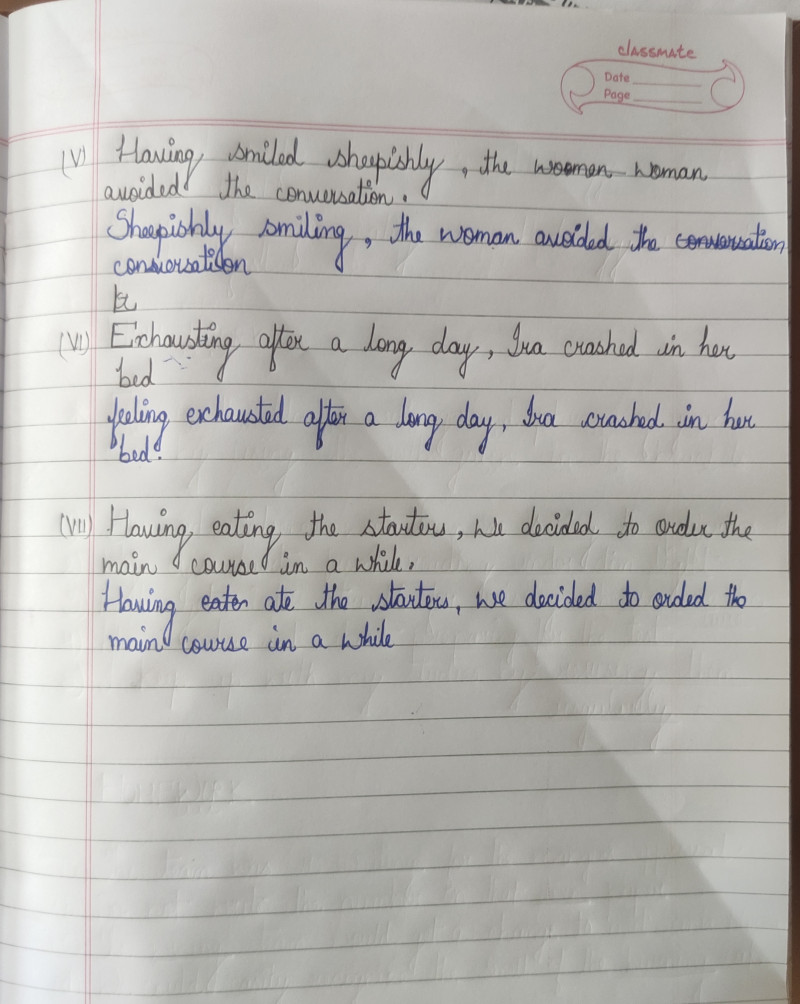 classmate
Date
Page
(V) Having smiled sheepishly, the woman
avoided the conversation.
Sheepishly smiling, the woman avoided the conversation
(VI) Exhausting after a long day, Ira crashed in her
bed
feeling exhausted after a long day, Ira crashed in her
bed.
(VII) Having eating the starters, we decided to order the
main course in a while.
Having ate the starters, we decided to orded the
main course in a while